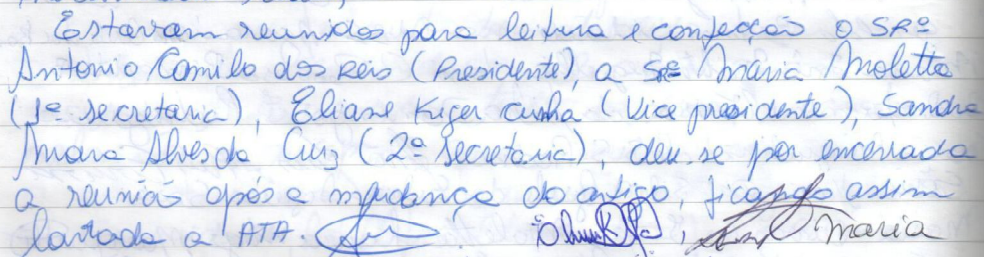 Estavam reunidos para leitura e confecção o SRº
Antonio Camilo dos Reis (Presidente), a SRª Maria Moletta
(1ª secretaria), Eliane Kiger Cunha (Vice presidente), Sandra
Mara Alves da Cruz (2ª secretaria), deu-se por encerrada
a reunião após a mudança do artigo, ficando assim
lavrada a ATA. Maria